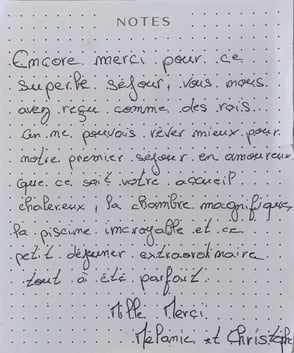 NOTES
Encore merci pour ce
superbe séjour, vous nous
avez reçu comme des rois...
On ne pouvais rêver mieux pour
notre premier séjour en amoureux
que ce soit votre accueil
chaleureux, la chambre magnifique,
la piscine incroyable et ce
petit déjeuner extraordinaire
tout a été parfait.
Mille Merci.
Mélanie et Christophe